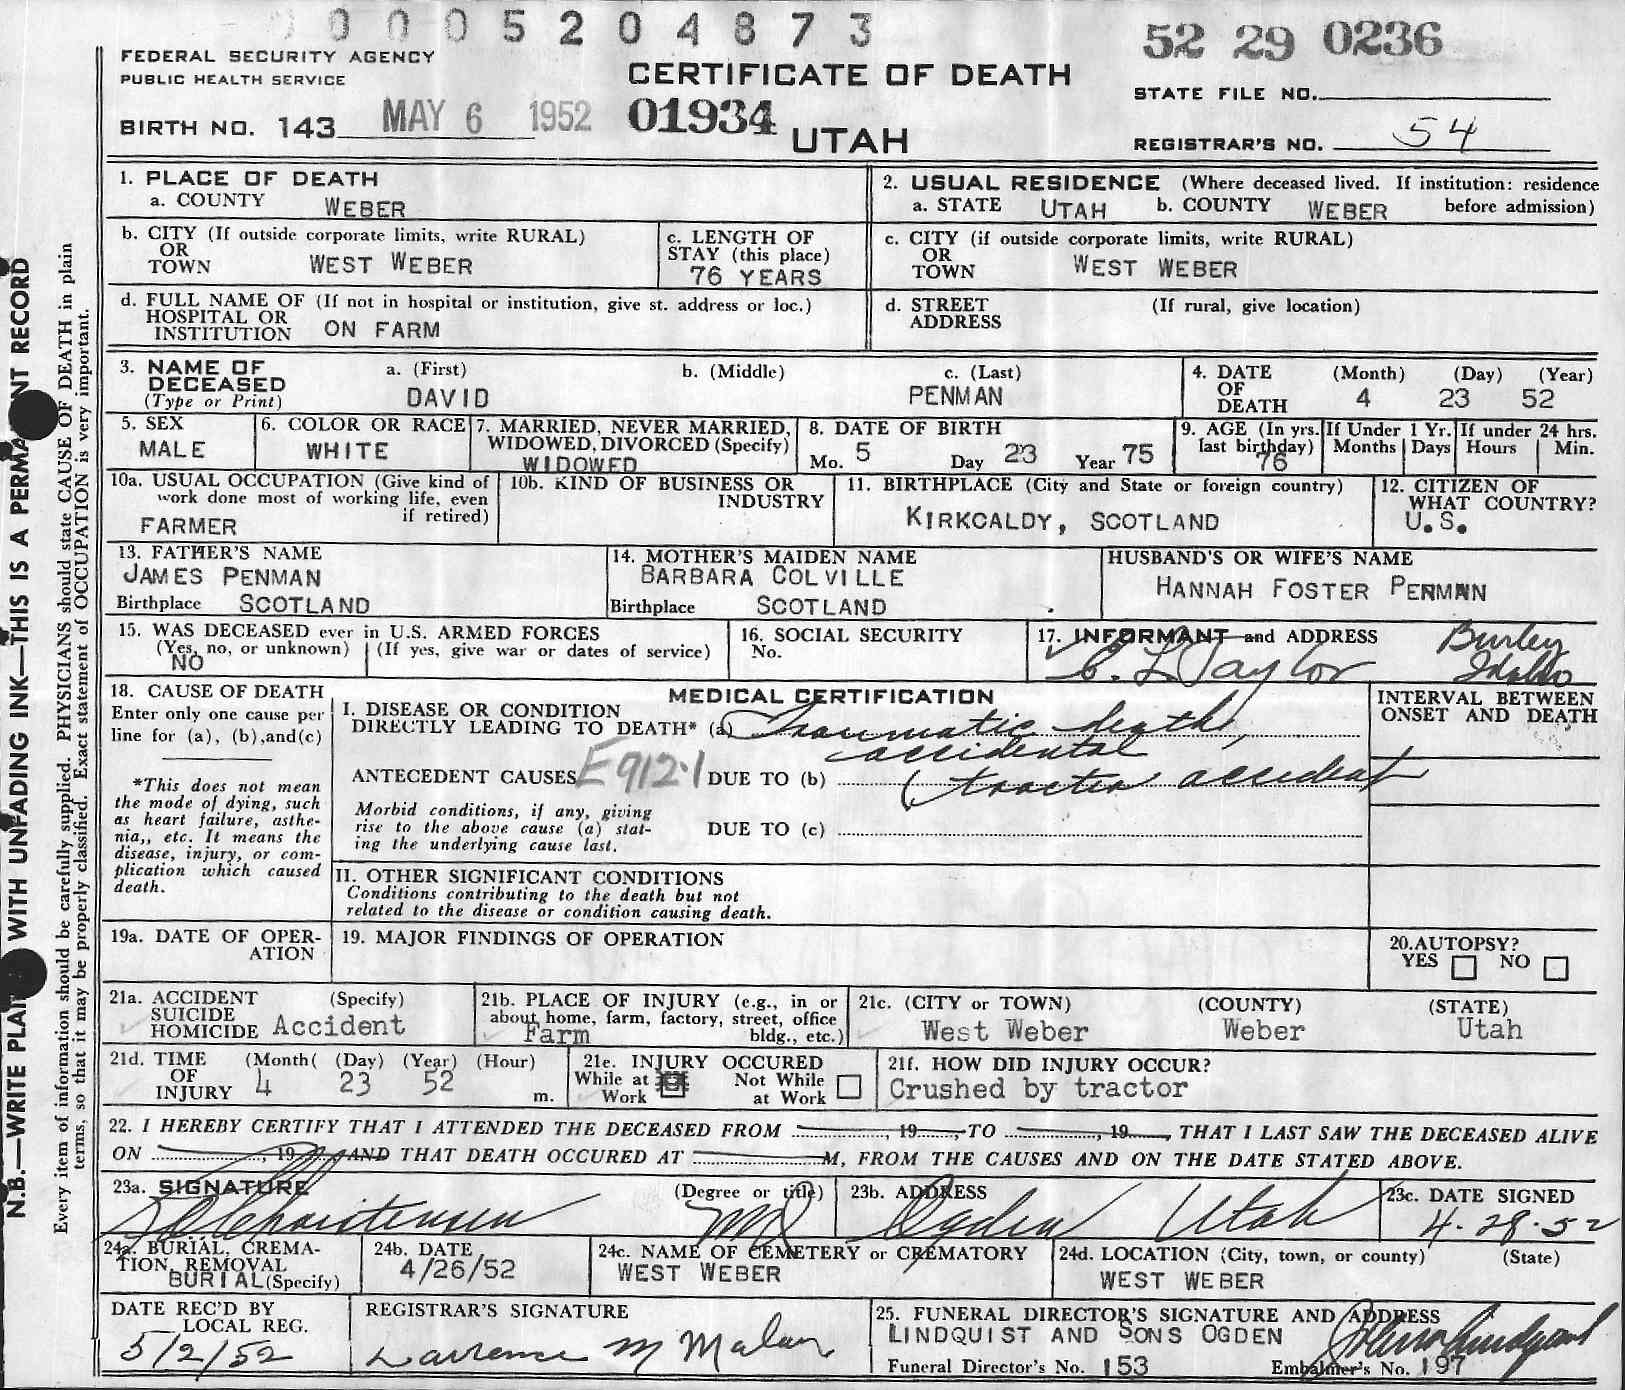 0 0 0 5 2 0 4 8 7 3
52 29 0236
FEDERAL SECURITY AGENCY
PUBLIC HEALTH SERVICE
CERTIFICATE OF DEATH
STATE FILE NO.
BIRTH NO. 143 MAY 6 1952 01934 UTAH
REGISTRAR'S NO. 54
1. PLACE OF DEATH
a. COUNTY WEBER
2. USUAL RESIDENCE (Where deceased lived. If institution: residence before admission)
a. STATE UTAH b. COUNTY WEBER
b. CITY (If outside corporate limits, write RURAL)
OR
TOWN WEST WEBER
c. LENGTH OF
STAY (this place)
76 YEARS
c. CITY (if outside corporate limits, write RURAL)
OR
TOWN WEST WEBER
d. FULL NAME OF (If not in hospital or institution, give st. address or loc.)
HOSPITAL OR
INSTITUTION ON FARM
d. STREET (If rural, give location)
ADDRESS
3. NAME OF
DECEASED
(Type or Print)
a. (First) b. (Middle) c. (Last)
DAVID PENMAN
4. DATE (Month) (Day) (Year)
OF
DEATH 4 23 52
5. SEX
MALE
6. COLOR OR RACE
WHITE
7. MARRIED, NEVER MARRIED,
WIDOWED, DIVORCED (Specify)
WIDOWED
8. DATE OF BIRTH
Mo. 5 Day 23 Year 75
9. AGE (In yrs.
last birthday)
76
If Under 1 Yr.
Months Days
If under 24 hrs.
Hours Min.
10a. USUAL OCCUPATION (Give kind of
work done most of working life, even
if retired)
FARMER
10b. KIND OF BUSINESS OR
INDUSTRY
11. BIRTHPLACE (City and State or foreign country)
KIRKCALDY, SCOTLAND
12. CITIZEN OF
WHAT COUNTRY?
U.S.
13. FATHER'S NAME
JAMES PENMAN
Birthplace SCOTLAND
14. MOTHER'S MAIDEN NAME
BARBARA COLVILLE
Birthplace SCOTLAND
HUSBAND'S OR WIFE'S NAME
HANNAH FOSTER PENMAN
15. WAS DECEASED ever in U.S. ARMED FORCES
(Yes, no, or unknown) (If yes, give war or dates of service)
NO
16. SOCIAL SECURITY
No.
17. INFORMANT and ADDRESS
C. L. Taylor Burley
Idaho
18. CAUSE OF DEATH
Enter only one cause per
line for (a), (b),and(c)
*This does not mean
the mode of dying, such
as heart failure, asthe-
nia,, etc. It means the
disease, injury, or com-
plication which caused
death.
MEDICAL CERTIFICATION
I. DISEASE OR CONDITION
DIRECTLY LEADING TO DEATH* (a) Traumatic death,
accidental
ANTECEDENT CAUSES E912.1 DUE TO (b) (tractor accident
Morbid conditions, if any, giving
rise to the above cause (a) stat-
ing the underlying cause last.
DUE TO (c)
INTERVAL BETWEEN
ONSET AND DEATH
II. OTHER SIGNIFICANT CONDITIONS
Conditions contributing to the death but not
related to the disease or condition causing death.
19a. DATE OF OPER-
ATION
19. MAJOR FINDINGS OF OPERATION
20.AUTOPSY?
YES NO
21a. ACCIDENT (Specify)
SUICIDE
HOMICIDE Accident
21b. PLACE OF INJURY (e.g., in or
about home, farm, factory, street, office
bldg., etc.)
Farm
21c. (CITY or TOWN) (COUNTY) (STATE)
West Weber Weber Utah
21d. TIME (Month( (Day) (Year) (Hour)
OF
INJURY 4 23 52 m.
21e. INJURY OCCURED
While at Not While
Work at Work
21f. HOW DID INJURY OCCUR?
Crushed by tractor
22. I HEREBY CERTIFY THAT I ATTENDED THE DECEASED FROM , 19 , TO , 19 , THAT I LAST SAW THE DECEASED ALIVE
ON , 19 AND THAT DEATH OCCURED AT M, FROM THE CAUSES AND ON THE DATE STATED ABOVE.
23a. SIGNATURE (Degree or title)
Christensen MD
23b. ADDRESS
Ogden Utah
23c. DATE SIGNED
4-28-52
24a. BURIAL, CREMA-
TION, REMOVAL
BURIAL (Specify)
24b. DATE
4/26/52
24c. NAME OF CEMETERY or CREMATORY
WEST WEBER
24d. LOCATION (City, town, or county) (State)
WEST WEBER
DATE REC'D BY
LOCAL REG.
5/2/52
REGISTRAR'S SIGNATURE
Lawrence M Malan
25. FUNERAL DIRECTOR'S SIGNATURE AND ADDRESS
LINDQUIST AND SONS OGDEN
Funeral Director's No. 153 Embalmer's No. 197
N.B.—WRITE PLAI WITH UNFADING INK—THIS IS A PERMA NT RECORD
Every item of information should be carefully supplied. PHYSICIANS should state CAUSE OF DEATH in plain
terms, so that it may be properly classified. Exact statement of OCCUPATION is very important.